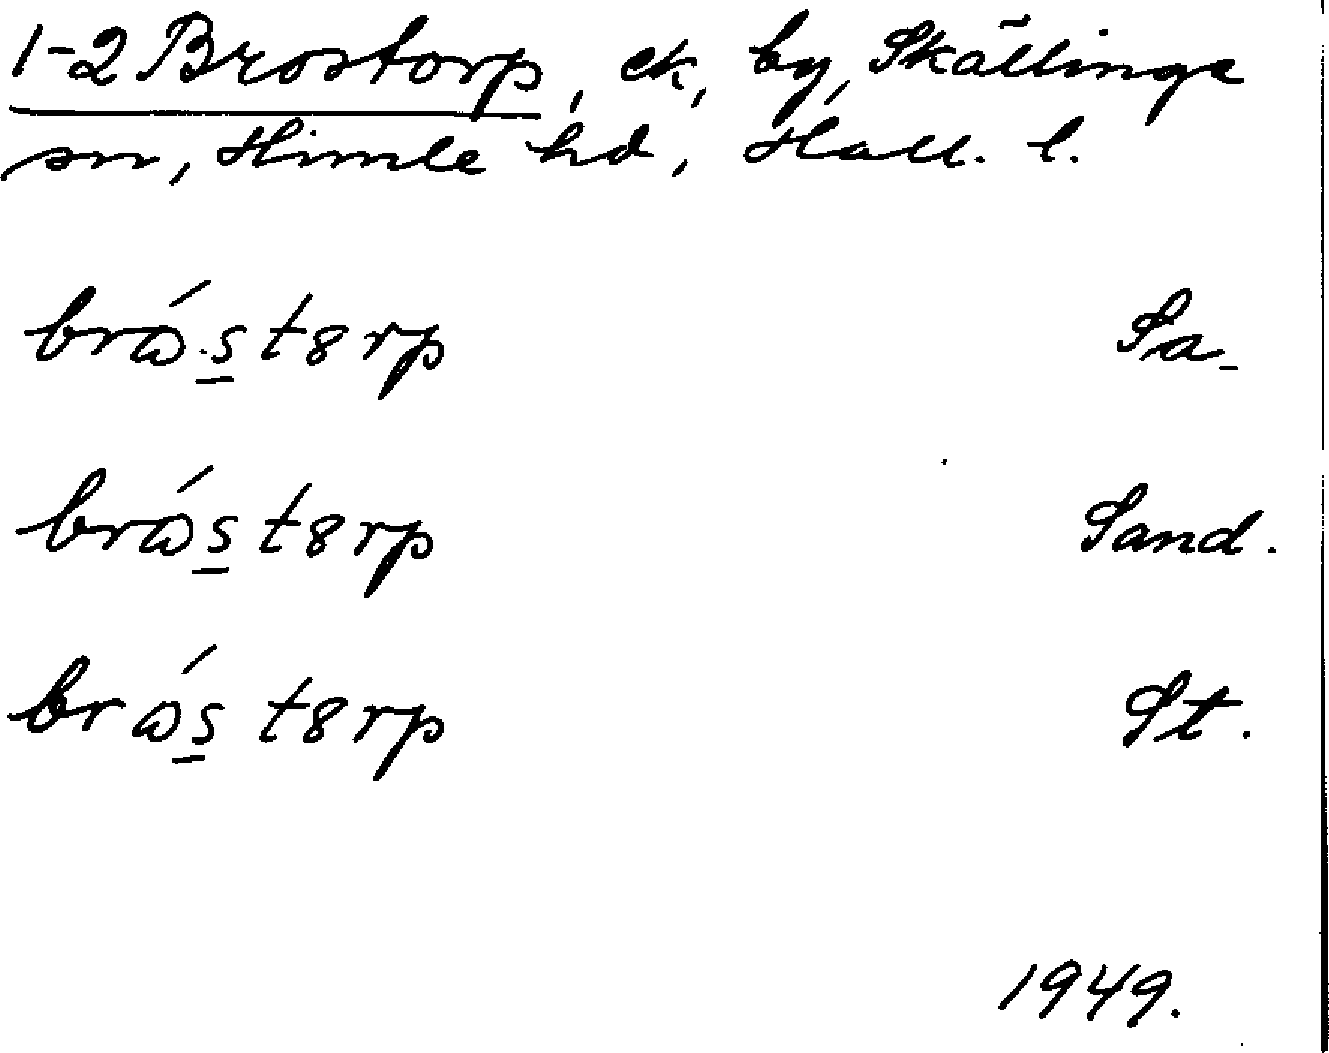 1-2 Brostorp, ek, by, Skällinge
sn, Himle hd, Hall. l.
brǻ.s̲t8rp Sa.
brǻs̲t8rp Sand.
brǻs̲t8rp St.
1949.